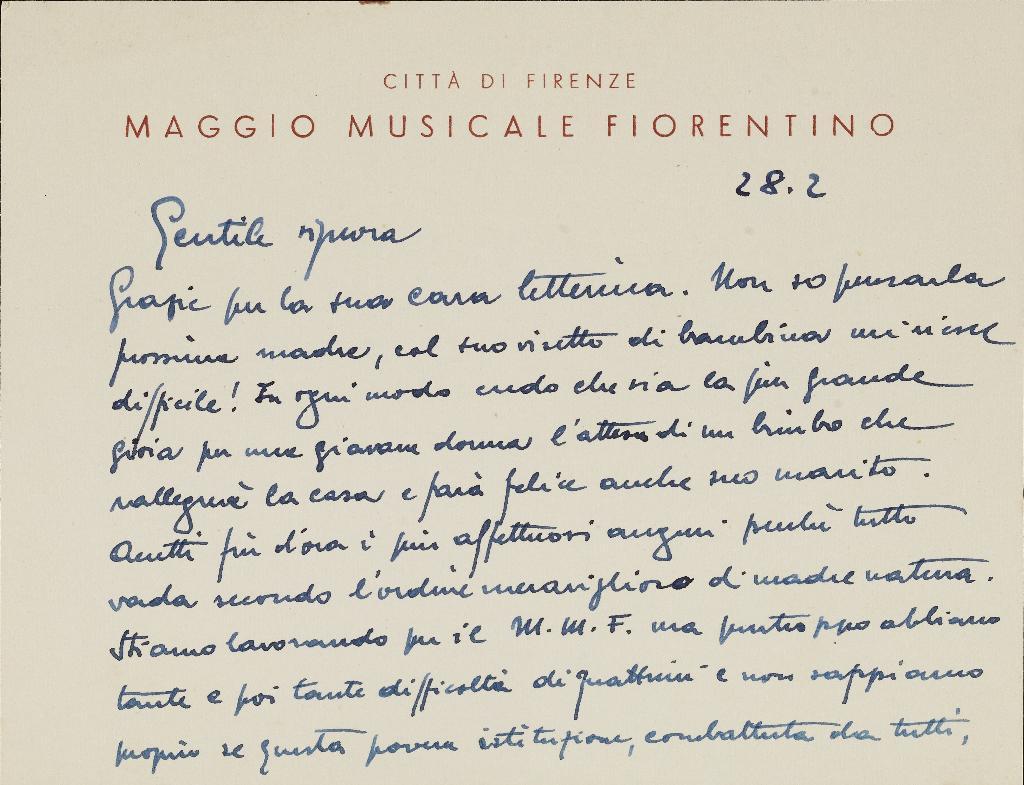 CITTÀ DI FIRENZE
MAGGIO MUSICALE FIORENTINO
28.2
Gentile signora
Grazie per la sua cara letterina. Non so pensarla
prossima madre, col suo visetto di bambina mi riesce
difficile! In ogni modo credo che sia la più grande
gioia per una giovane donna l'attesa di un bimbo che
rallegrerà la casa e farà felice anche suo marito.
Accetti fin d'ora i più affettuosi auguri perchè tutto
vada secondo l'ordine meraviglioso di madre natura.
Stiamo lavorando per il M.M.F. ma purtroppo abbiamo
tante e poi tante difficoltà di quattrini e non sappiamo
proprio se questa povera istituzione, combattuta da tutti,